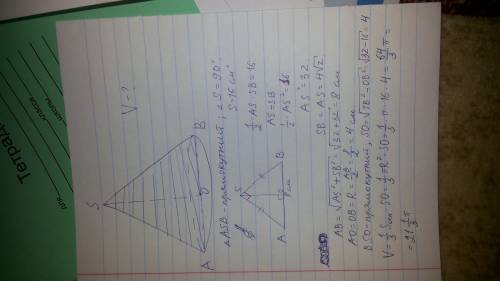 Тетрадь
V-?
S
A
O
B
△ASB-прямокутний; ∠S=90°
S=16 см²
S
A
B
8см
1/2 AS·SB=16
AS=SB
1/2 AS²=16
AS²=32
SB=AS=4√2
AB=√AS²+SB²=√32+32=8 см
AO=OB=R=AB/2=8/2=4 см
BSO-прямокутний, SO=√SB²-OB²=√32-16=4
V=1/3 Sосн·SO=1/3 πR²·SO=1/3·π·16·4=64/3 π=
=21 1/3 π